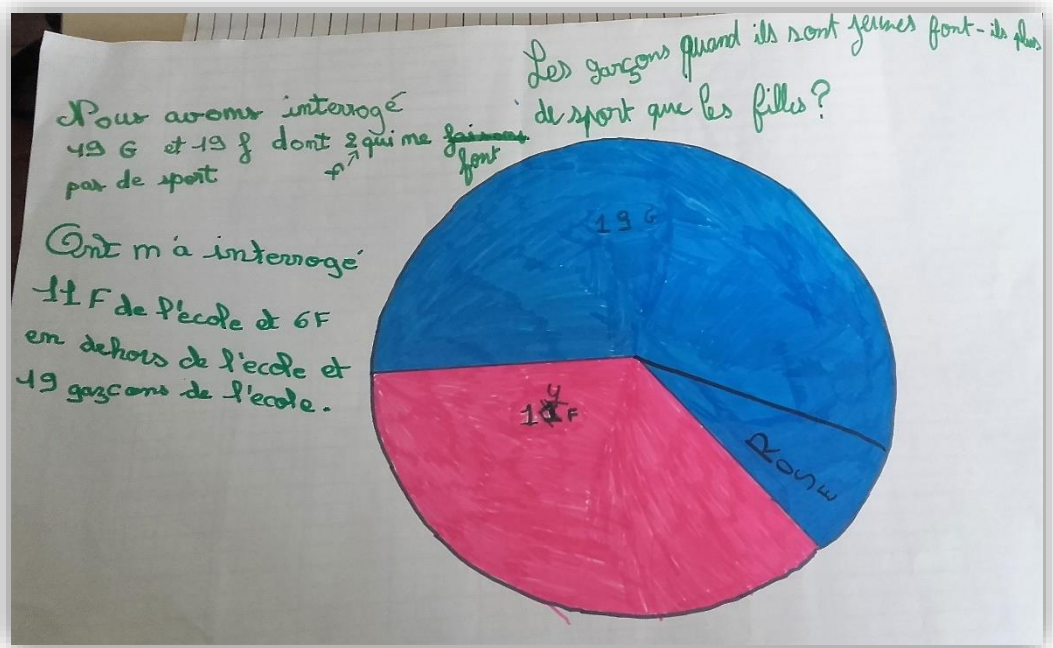 Les garçons quand ils sont jeunes font-ils plus
de sport que les filles ?
Nous avons interrogé
19 G et 19 f dont 2 qui ne faisons
f font
pas de sport
Ont m'a interrogé
11 F de l'école et 6F
en dehors de l'ecole et
19 gazcons de l'ecole.
19 G
F
ROSE